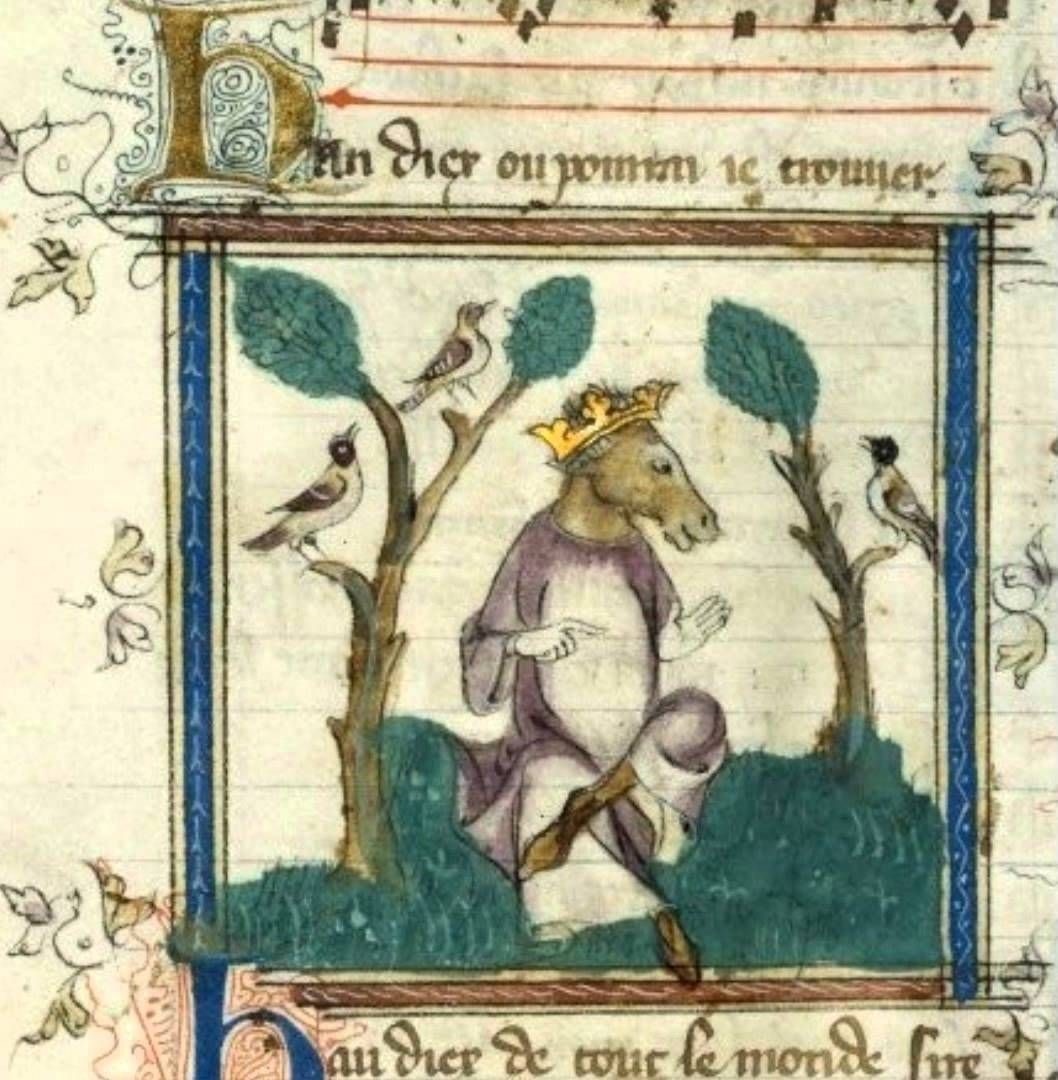 HAu diex ou pourrai ie trouuer.
Hau diex de tout le monde sire